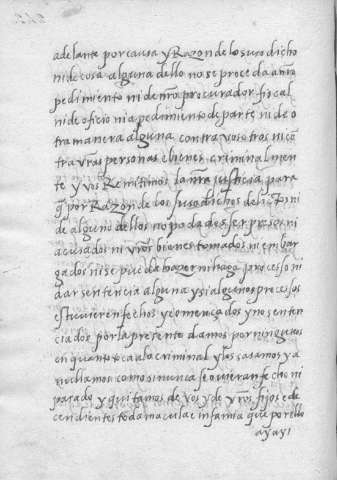 adelante por causa y Razon de lo suso dicho
ni de cosa alguna dello no se proceda a nro
pedimiento ni de nro procurador fiscal
ni de oficio ni a pedimiento de parte ni de o
tra manera alguna contra vosotros ni cõ
tra vras personas e bienes criminalmen
te y vos Remitimos la nra justicia para
q̃ por Razon de los suso dichos delictos ni
de alguno dellos no podades ser presos ni
acusados ni vros bienes tomados ni embar
gados ni se pueda hazer ni haga processo ni
dar sentencia alguna y si algunos processos
estuvieren fechos y començados y no senten
ciados por la presente damos por ningunos
en quanto toca a lo criminal y los casamos y a
nullamos como si nunca se ovieran fecho ni
pasado y quitamos de vos y de vros fijos e de
cendientes toda macula e infamia que por ello
ayays